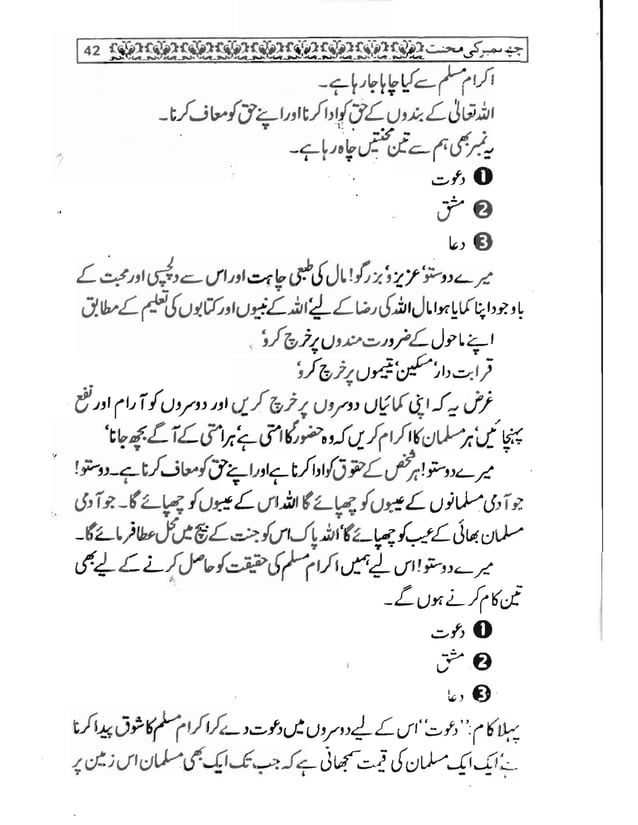 چھ نمبر کی محنت 42
اکرام مسلم سے کیا چاہا جا رہا ہے۔
اللہ تعالیٰ کے بندوں کے حق کو ادا کرنا اور اپنے حق کو معاف کرنا۔
یہ نمبر بھی ہم سے تین محنتیں چاہ رہا ہے۔
❶ دعوت
❷ مشق
❸ دعا
میرے دوستو، عزیزو، بزرگو! مال کی طبعی چاہت اور اس سے دلچسپی اور محبت کے
باوجود اپنا کمایا ہوا مال اللہ کی رضا کے لیے، اللہ کے نبیوں اور کتابوں کی تعلیم کے مطابق
اپنے ماحول کے ضرورت مندوں پر خرچ کرو،
قرابت دار، مسکین، یتیموں پر خرچ کرو،
غرض یہ کہ اپنی کمائیاں دوسروں پر خرچ کریں اور دوسروں کو آرام اور نفع
پہنچائیں، ہر مسلمان کا اکرام کریں کہ وہ حضورؐ کا امتی ہے، ہر امتی کے آگے بچھ جانا،
میرے دوستو! ہر شخص کے حقوق کو ادا کرنا ہے اور اپنے حق کو معاف کرنا ہے۔ دوستو!
جو آدمی مسلمانوں کے عیبوں کو چھپائے گا اللہ اس کے عیبوں کو چھپائے گا۔ جو آدمی
مسلمان بھائی کے عیب کو چھپائے گا، اللہ پاک اس کو جنت کے بیچ میں محل عطا فرمائے گا۔
میرے دوستو! اس لیے ہمیں اکرام مسلم کی حقیقت کو حاصل کرنے کے لیے بھی
تین کام کرنے ہوں گے۔
❶ دعوت
❷ مشق
❸ دعا
پہلا کام: ''دعوت'' اس کے لیے دوسروں میں دعوت دے کر اکرام مسلم کا شوق پیدا کرنا
ہے، ایک ایک مسلمان کی قیمت سمجھانی ہے کہ جب تک ایک بھی مسلمان اس زمین پر